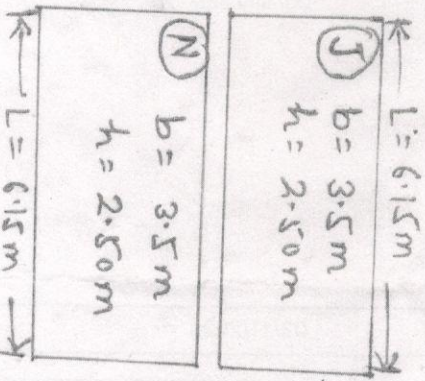 L = 6.15m
J
b = 3.5 m
h = 2.50 m
N
b = 3.5 m
h = 2.50 m
L = 6.15 m